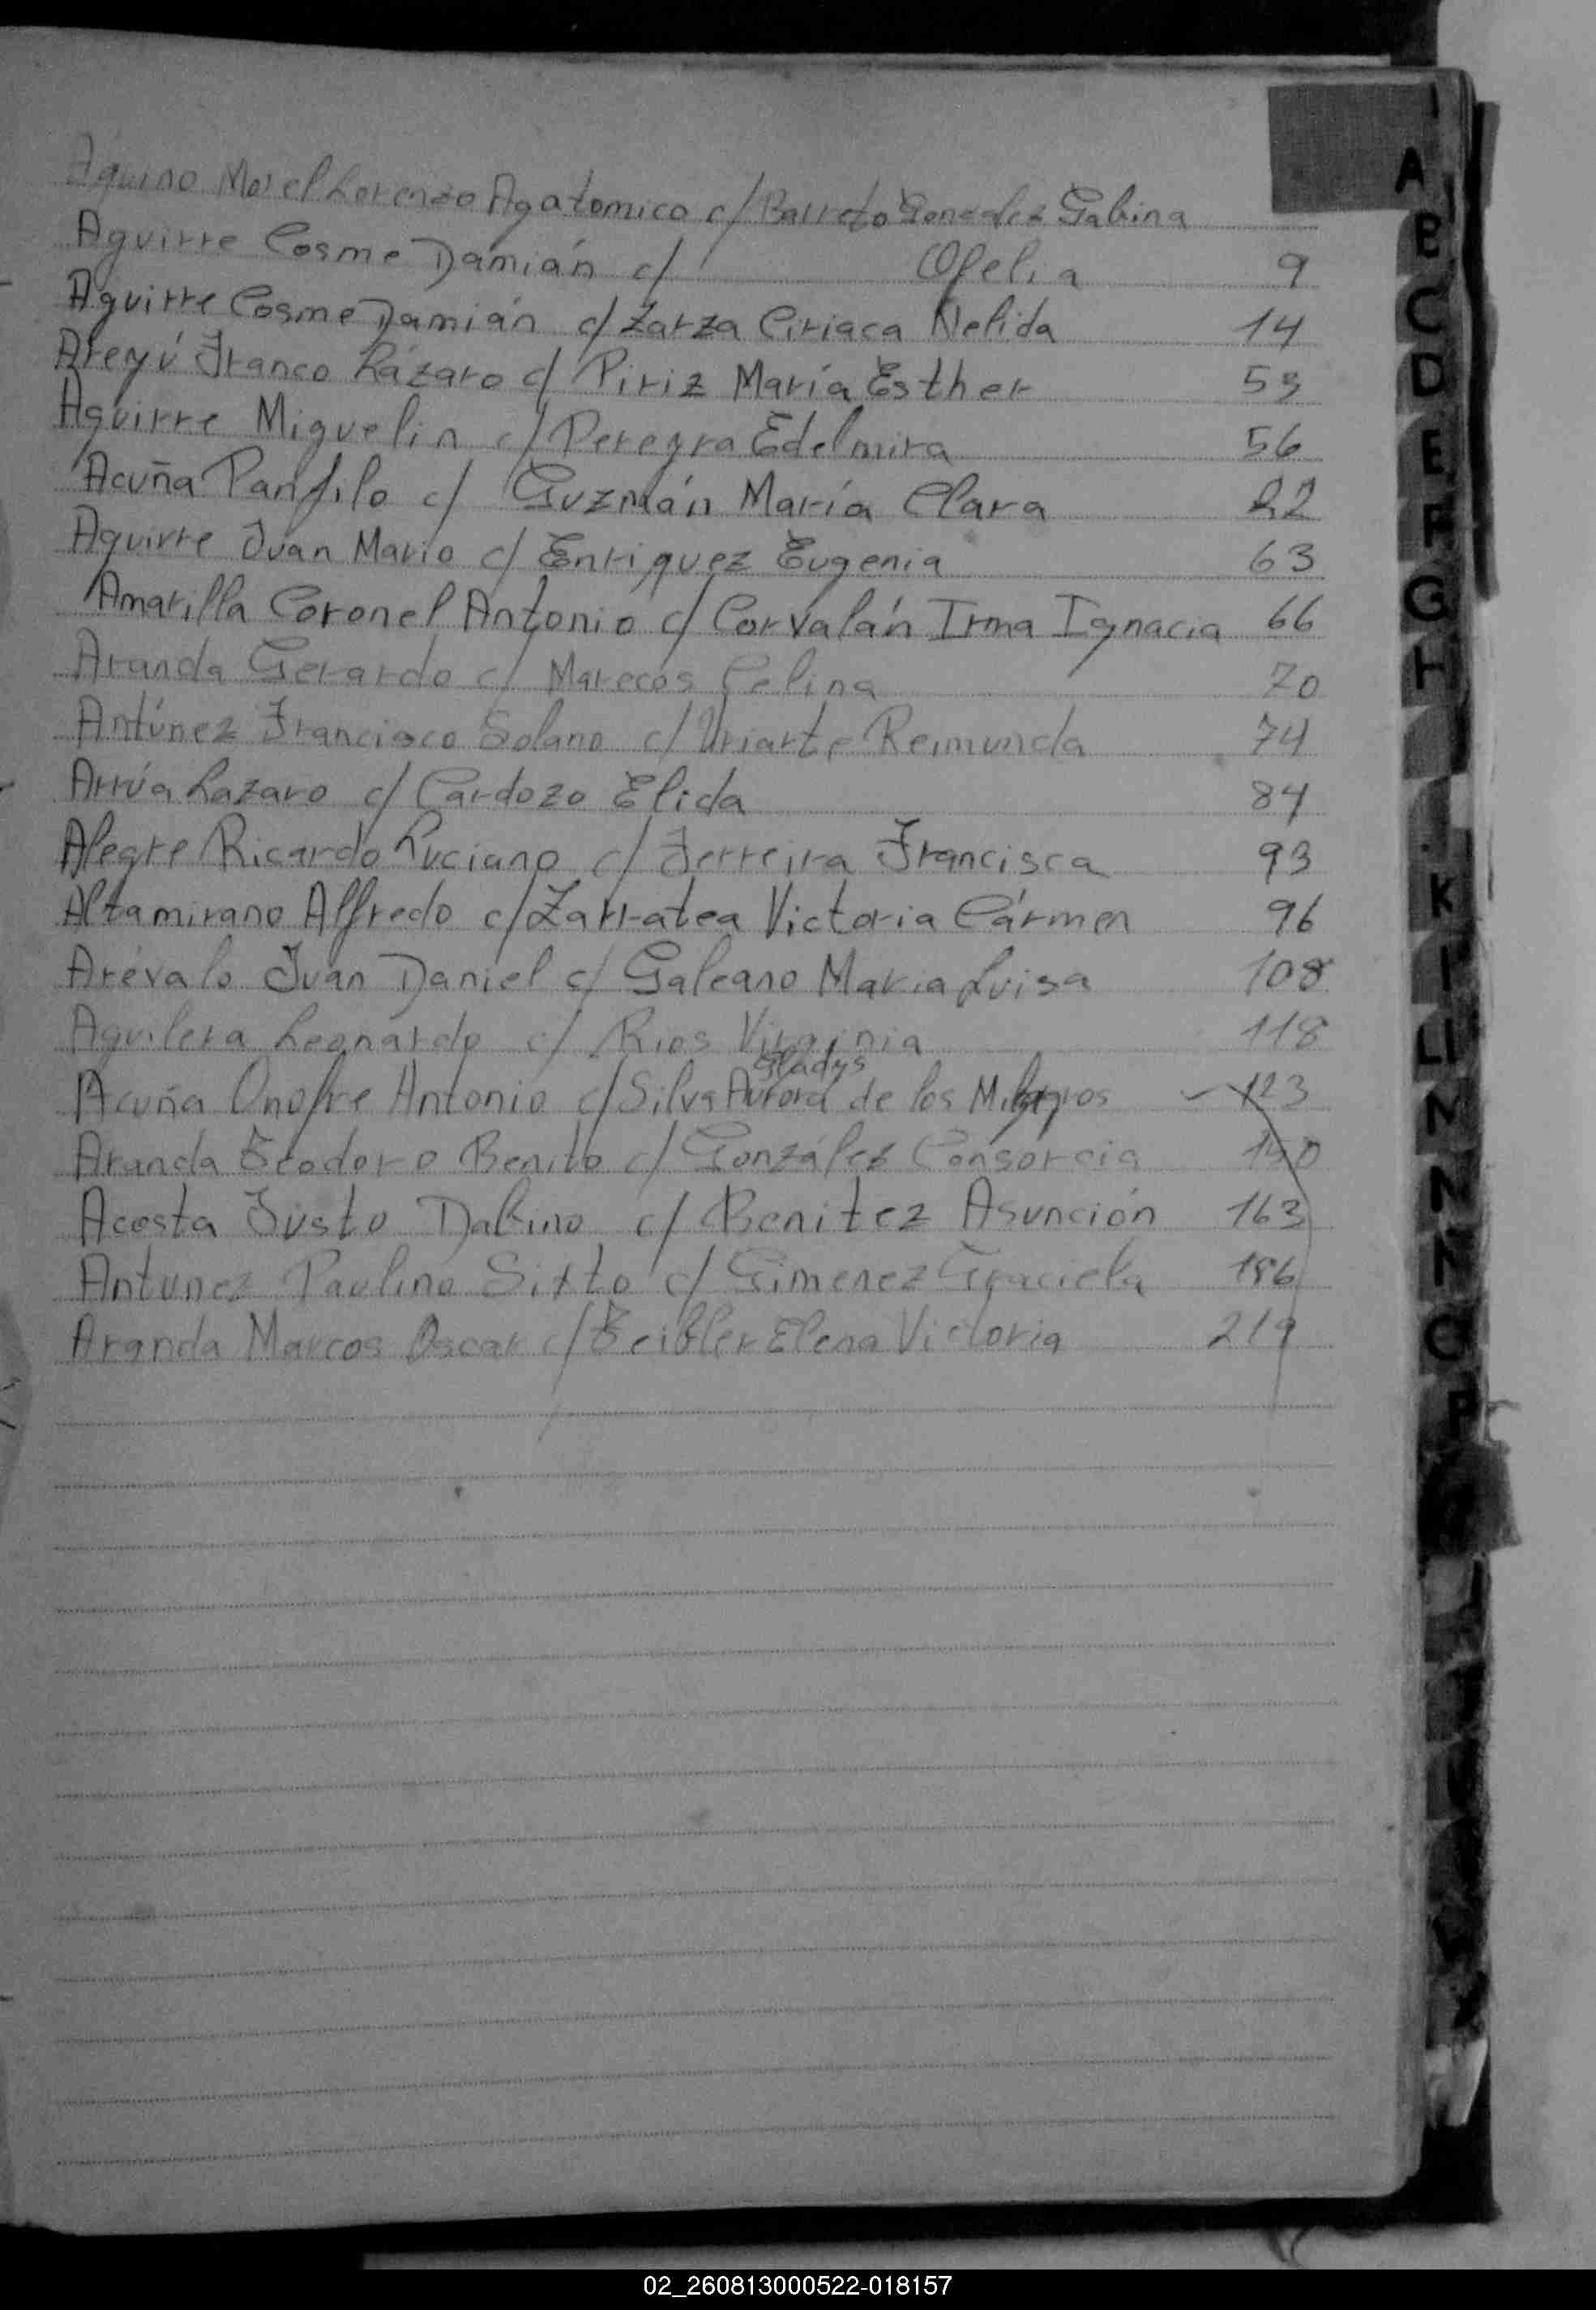 Aquino Morel Lorenzo Agatomico c/ Barreto Gonzalez Gabina
Aguirre Cosme Damián c/ Ofelia 9
Aguirre Cosme Damián c/ Zarza Ciriaca Nelida 14
Areyú Franco Lázaro c/ Piriz María Esther 53
Aguirre Miguelin c/ Pereyra Edelmira 56
Acuña Panfilo c/ Guzmán María Clara 22
Aguirre Juan Mario c/ Enriquez Eugenia 63
Amarilla Coronel Antonio c/ Corvalán Irma Ignacia 66
Aranda Gerardo c/ Marecos Celina 70
Antúnez Francisco Solano c/ Uriarte Reimunda 74
Arrúa Lazaro c/ Cardozo Elida 84
Alegre Ricardo Luciano c/ Ferreira Francisca 93
Altamirano Alfredo c/ Zarratea Victoria Cármen 96
Arévalo Juan Daniel c/ Galeano Maria Luisa 108
Aguilera Leonardo c/ Rios Virginia 118
Gladys
Acuña Onofre Antonio c/ Silva Aurora de los Milagros 123
Aranda Teodoro Benito c/ González Consorcia 150
Acosta Justo Dabino c/ Benitez Asunción 163
Antunez Paulino Sixto c/ Gimenez Graciela 186
Aranda Marcos Oscar c/ Teibler Elena Victoria 219
A
B
C
D
E
F
G
H
K
L
LL
N
N
N
O
P
02_260813000522-018157